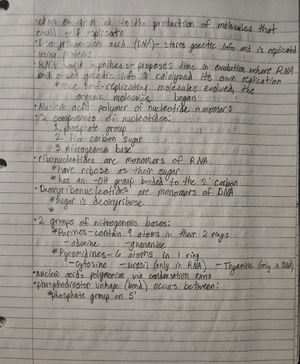 •chem evolution led to the production of molecules that
could self replicate
•Deoxyribonucleic acid (DNA)- stores genetic info and is replicated
using proteins
•RNA world hypothesis- proposes time in evolution where RNA
stored genetic info & catalyzed its own replication
*once self-replicating molecules evolved, the
began
•Nucleic acid polymer of nucleotide monomers
•3 components of nucleotides:
1. phosphate group
2. five carbon sugar
3. nitrogenous base
•ribonucleotides are monomers of RNA
*have ribose as their sugar
*has an -OH group bonded to the 2' carbon
•Deoxyribonucleotides are monomers of DNA
*sugar is deoxyribose
*
•2 groups of nitrogenous bases:
*Purines- contain 9 atoms in their 2 rings
-adenine -guanine
*Pyramidines- 6 atoms in 1 ring
-Cytosine -uracil (only in RNA) -Thyamine (only in DNA)
•nucleic acids polymerize via condensation rxns
•phosphodiester linkage (bond) occurs between:
*phosphate group on 5'